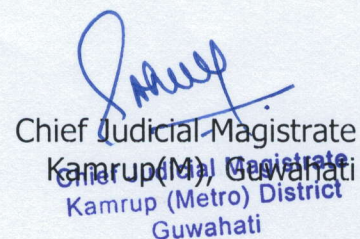 Chief Judicial Magistrate
Kamrup(M), Guwahati
Chief Judicial Magistrate
Kamrup (Metro) District
Guwahati